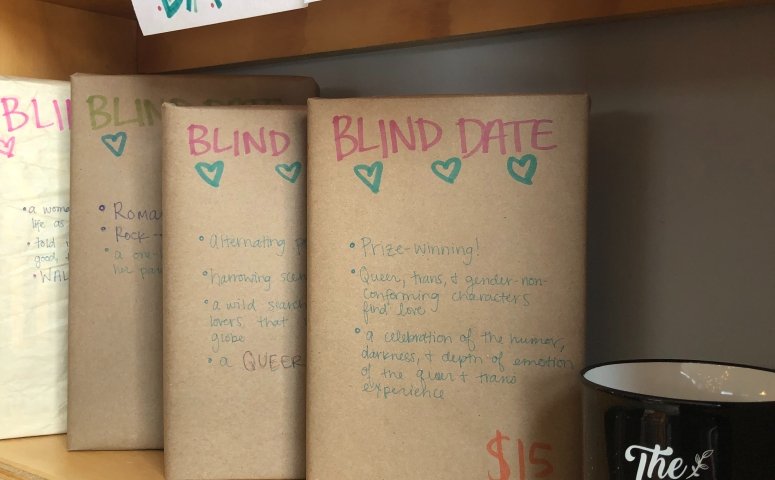 BLI
• a woma
life as
• told i
good,
• WAL
BLIND DATE
• Roma
• Rock-
• a one-
her pai
BLIND
• alternating p
• harrowing scen
• a wild search
lovers, that
globe
• a QUEER
BLIND DATE
• Prize-winning!
• Queer, trans, & gender-non-
conforming characters
find love
• a celebration of the humor,
darkness, & depth of emotion
of the queer & trans
experience
$15
The